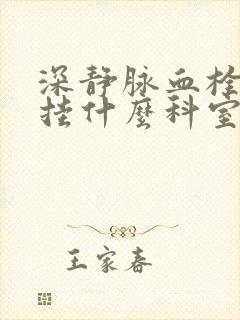 深静脉血栓
挂什麼科室
王家春